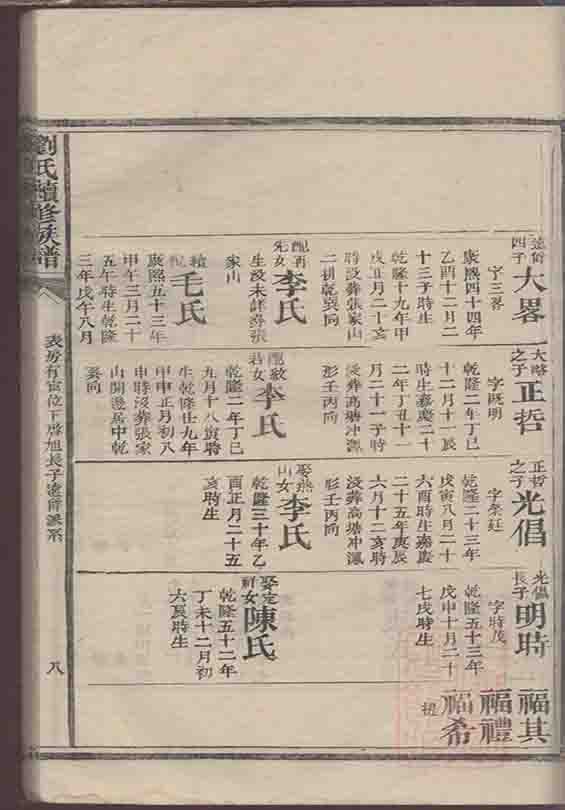 劉氏續修族譜
表房有宙位下啓旭長子遠侢派系
八
四子
大畧
字三畧
康熙四十四年
乙酉十二月二
十三子時生
乾隆十九年甲
戌正月二十亥
時沒葬張家山
二初乾巽向
配
先女
李氏
生沒未詳葬張
家山
續
毛氏
康熙五十三年
甲午三月十一
五午時生乾隆
三年戊午八月
大略
之子
正哲
字既明
乾隆二年丁巳
十二月十一辰
時生嘉慶二十
二年丁丑十一
月二十一子時
沒葬高塘冲
形壬丙向
配
女
李氏
乾隆二年丁巳
九月十八寅時
生乾隆廿九年
甲申正月初八
申時沒葬張家
山開塟居中乾
巽向
正哲
之子
光倡
字榮廷
乾隆二十三年
戊寅八月二十
六酉時生嘉慶
二十五年庚辰
六月十二亥時
沒葬高塘冲
形壬丙向
娶燕
山女
李氏
乾隆三十年乙
酉正月二十五
亥時生
光倡
長子
明時
字時茂
乾隆五十三年
戊申十月二十
七戌時生
娶定
女
陳氏
乾隆五十二年
丁未十二月初
六辰時生
福其
福禮
福希